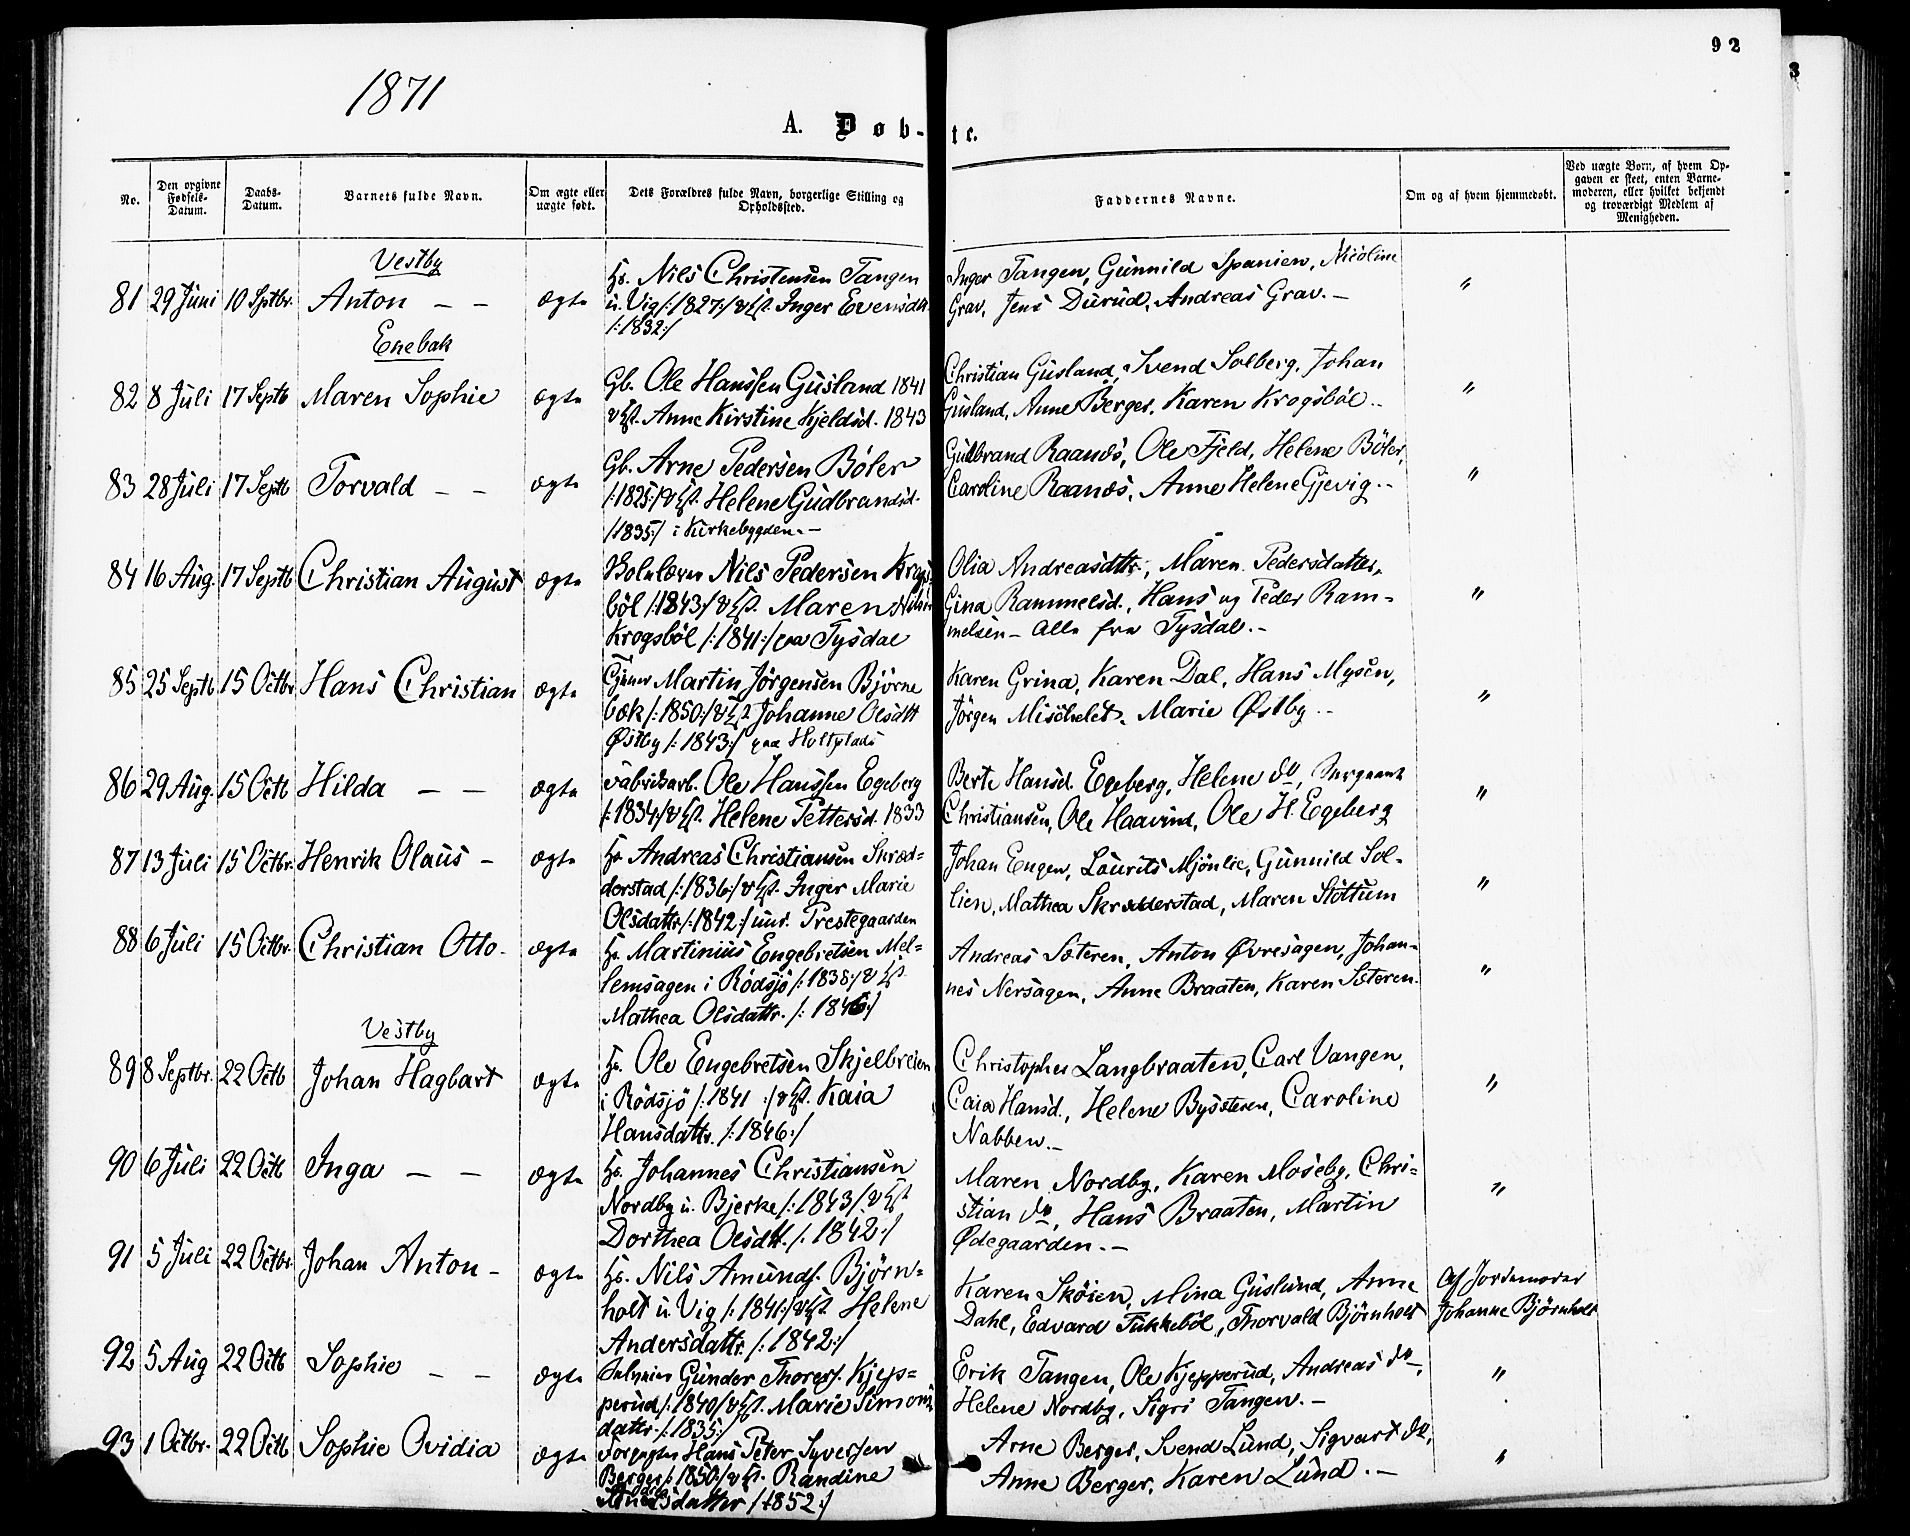 92
3
1871
A. Døb-
te.
No.
Den opgivne Fødsels-Datum.
Daabs-Datum.
Barnets fulde Navn.
Om ægte eller uægte født.
Dets Forældres fulde Navn, borgerlige Stilling og Opholdssted.
Faddernes Navne.
Om og af hvem hjemmedøbt.
Ved uægte Born, af hvem Op-
gaven er skeet, enten Barne-
moderen, eller hvilket bekjendt
og troværdigt Medlem af
Menigheden.
Vestby
81 29 Juni 10 Sptbr. Anton – – ægte
Hs. Nils Christensen Tangen
u. Vig /:1827:/ Inger Evensdtr.
/:1832:/
Inger Tangen, Gunnild Spanien, Nicoline
Grav, Jens Durud, Andreas Grav. –
"
Enebak
82 8 Juli 17 Septb Maren Sophie ægte
Gb. Ole Hanssen Gusland 1841
Anne Kirstine Kjeldsd. 1843
Christian Gusland, Svend Solberg, Johan
Gusland, Anne Berger, Karen Krogsböl. –
"
83 28 Juli 17 Septb Torvald – – ægte
Gb. Arne Pedersen Böler
/:1825:/ Helene Gudbrandsd.
/1835:/ i Kirkebygden. –
Gudbrand Raanes, Ole Fjeld, Helene Böler,
Caroline Raanes, Anne Helene Gjevig. –
"
84 16 Aug. 17 Septb Christian August ægte
Nils Pedersen Krogs-
böl /:1843:/ Maren
Krogsböl /:1841:/ Tysdal
Olia Andreasdttr., Maren Pedersdatter,
Gina Rammelsd., Hans og Peder Ram-
melsen – Alle fra Tysdal. –
"
85 25 Septb 15 Octbr Hans Christian ægte
Martin Jörgensen Björne
bæk /:1850:/ Johanne Olsdtt
Östby /:1843:/ paa Holtplads
Karen Grina, Karen Dal, Hans Mysen,
Jörgen Mischelet, Marie Østby. –
"
86 29 Aug. 15 Octb Hilda – – ægte
Fabrikarb. Ole Hanssen Egeberg
/:1834:/ Helene Pettersd. 1833
Berte Hansd. Egeberg, Helene do, Sergeant
Christiansen, Ole Haavind, Ole H. Egeberg
"
87 13 Juli 15 Octbr. Henrik Olaus – ægte
Hs Andreas Christiansen Skræd-
derstad /:1836:/ Inger Marie
Olsdattr. /:1842:/ und. Prestegaarden
Johan Engen, Laurits Mjönlie, Gunnild Sol-
lien, Mathea Skrædderstad, Maren Stöttum
"
88 6 Juli 15 Octbr. Christian Otto. ægte
Hs Martinius Engebretsen Mel-
lemsagen i Rödsjö /:1838:/
Mathea Olsdattr. /:1846:/
Andreas Sæteren, Anton Øvresagen, Johan-
nes Nersagen, Anne Braaten, Karen Sæteren.
"
Vestby
89 8 Septbr. 22 Octb Johan Hagbart ægte
Hs. Ole Engebretsen Skjelbreien
i Rödsjö /:1841 :/ Kaia
Hansdattr. /:1846:/
Christopher Langbraaten, Carl Vangen,
Caia Hansd., Helene Bysæteren, Caroline
Nabben. –
"
90 6 Juli 22 Octb Inga – – ægte
Hs. Johannes Christiansen
Nordby u. Bjerke /:1843/
Dorthea Olsdtt. /:1842:/
Maren Nordby, Karen Moseby, Chri-
stian do, Hans Braaten, Martin
Ødegaarden. –
"
91 5 Juli 22 Octbr. Johan Anton – ægte
Hs. Nils Amunds. Björn-
holt u. Vig /:1841:/ Helene
Andersdattr. /:1842:/
Karen Sköien, Mina Guslund, Anne
Dahl, Edvard Tukkeböl, Thorvald Björnholt
Af Jordemoder
Johanne Björnholt
92 5 Aug 22 Octb Sophie – – ægte
Inderst Gunder Thores. Kjep-
perud /:1840/ Marie Simons
dattr. /:1835:/
Erik Tangen, Ole Kjepperud, Andreas do,
Helene Nordby, Sigri Tangen. –
"
93 1 Octbr. 22 Octb Sophie Ovidia ægte
Forpagter Hans Peter Syversen
Berger /:1850:/ Randine
datter /:1852:/
Arne Berger, Svend Lund, Sigvart do,
Anne Berger, Karen Lund. –
"